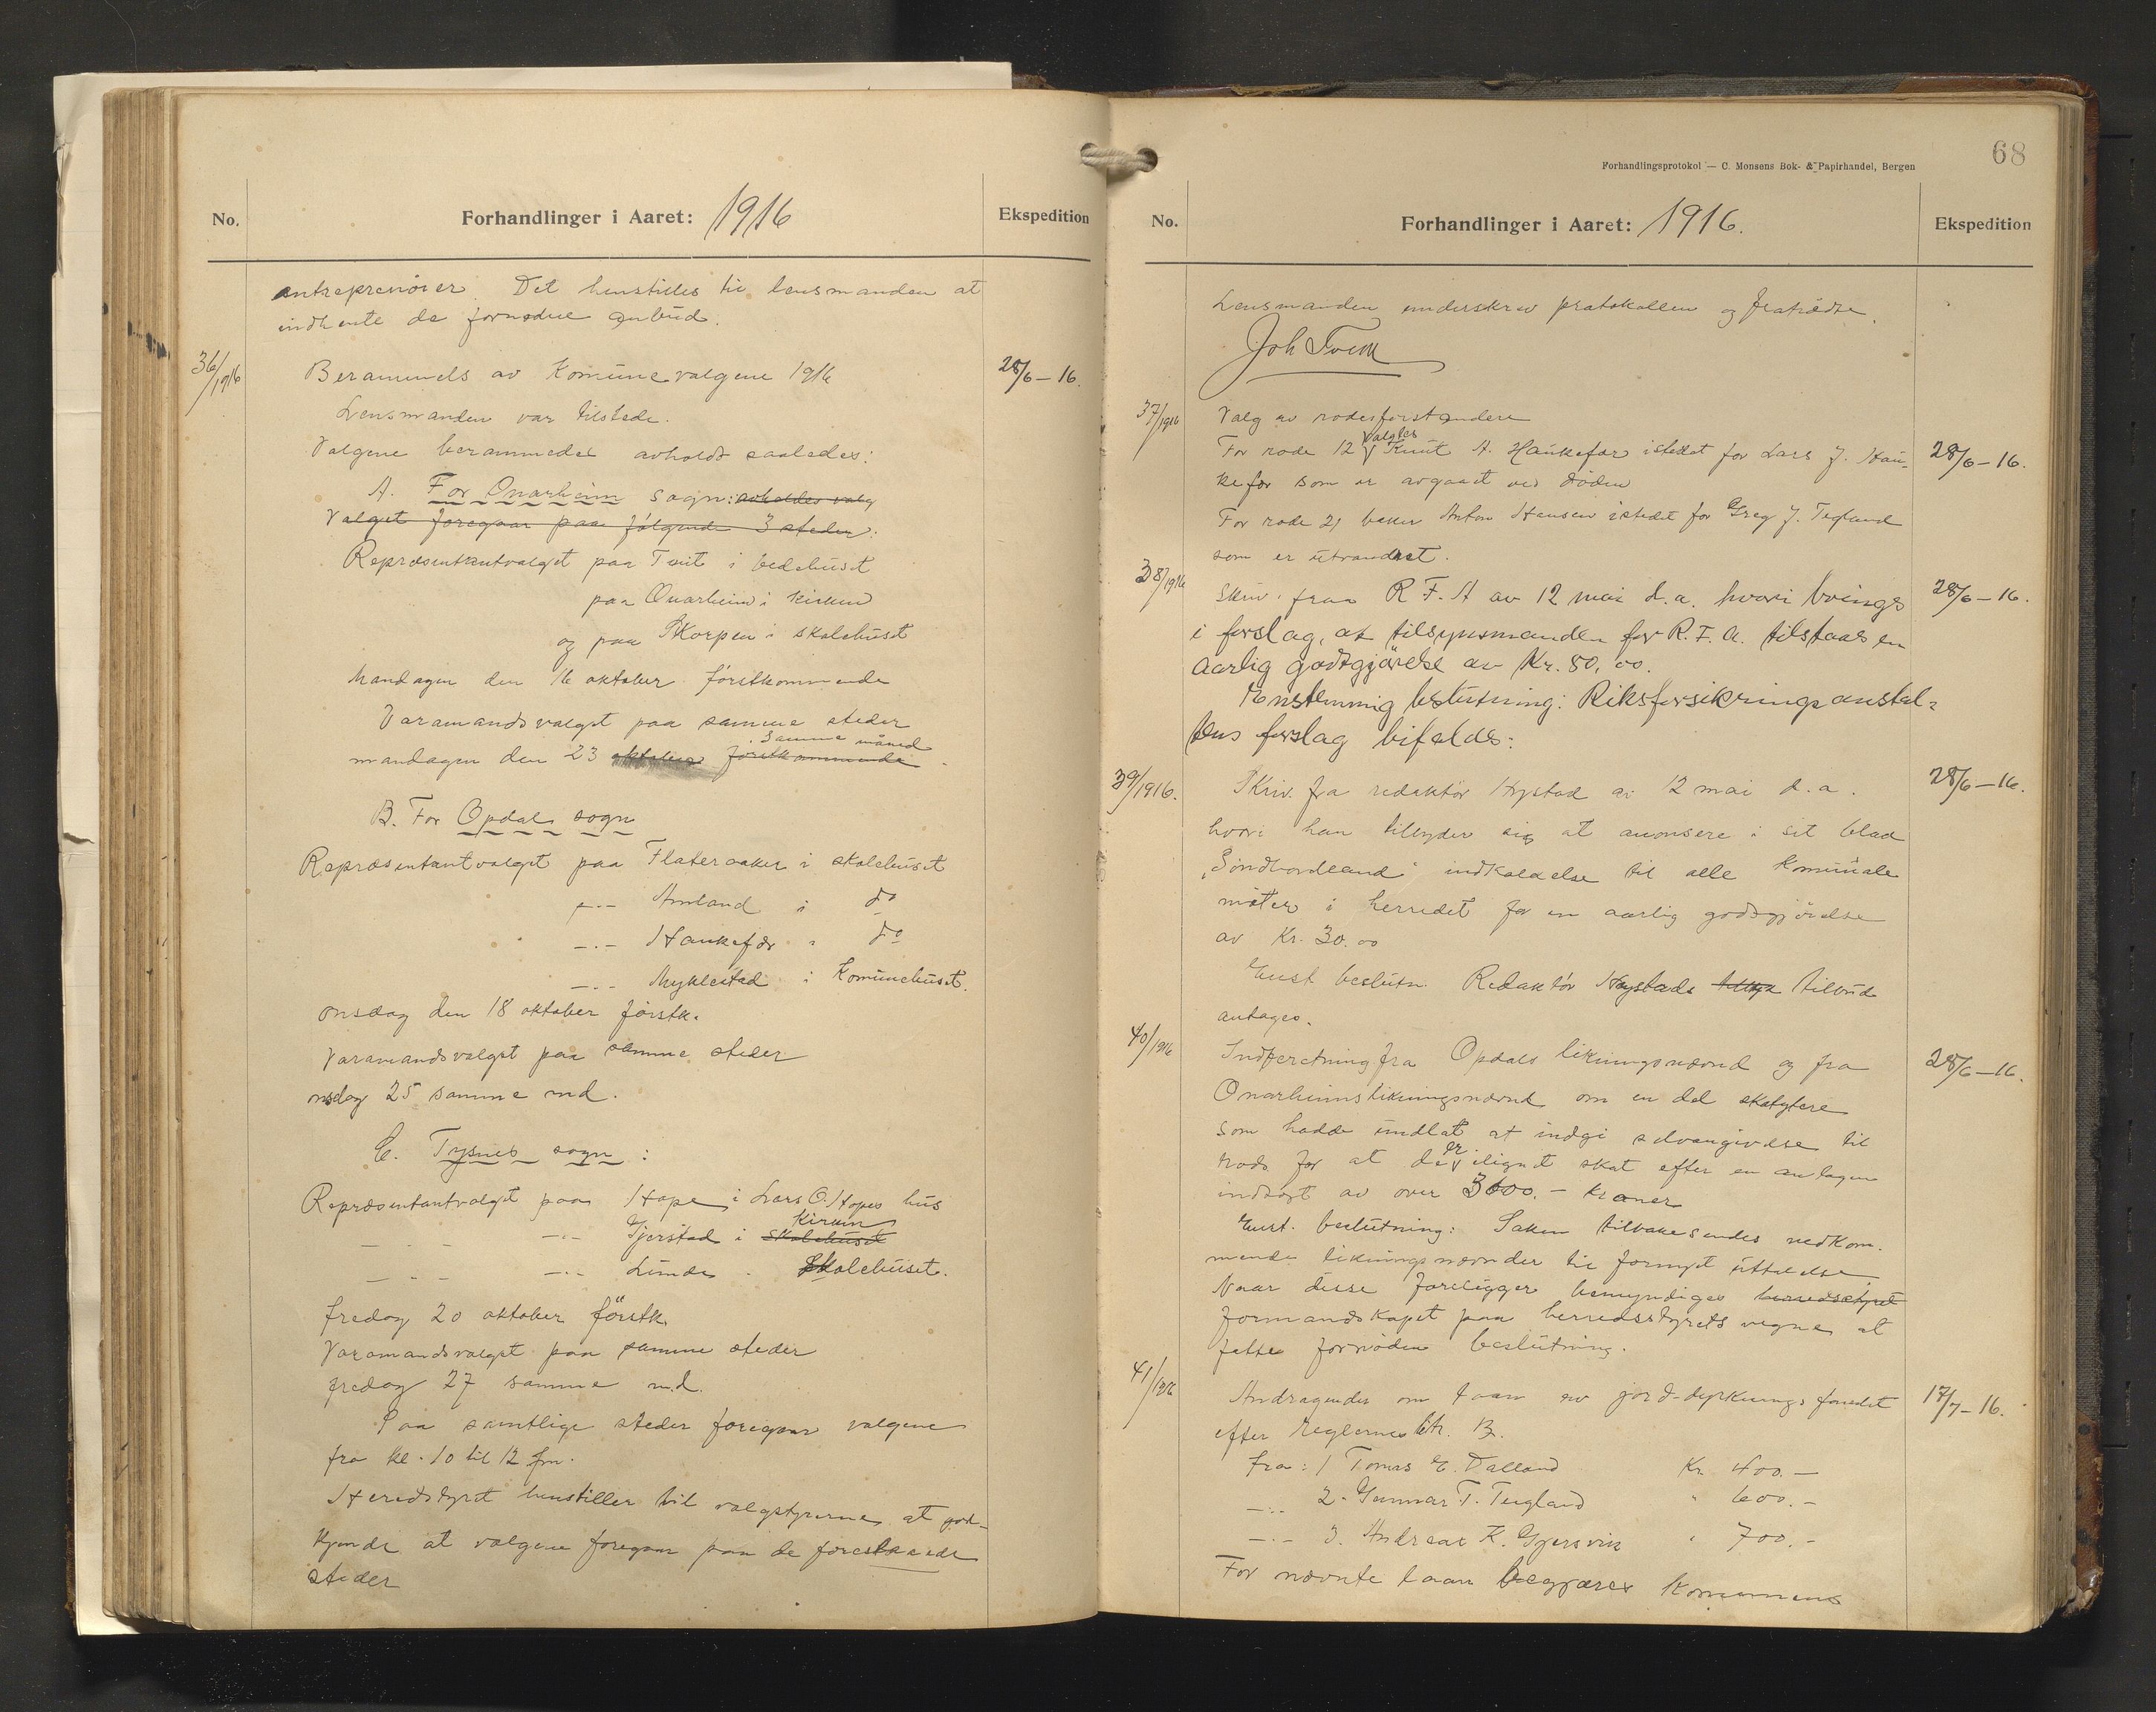 No.
Forhandlinger i Aaret: 1916
Ekspedition
antreprenører. Det henstilles til lensmanden at
indhente de fornødne anbud.
36/1916
Berammels av Komunevalgene 1916
28/6-16.
Lensmanden var tilstede.
Valgene berammedes avholdt saaledes:
A. For Onarheim sogn: avholdes valg
Valget foregaar paa følgende 3 steder:
Repræsentantvalget paa Tveit i bedehuset
paa Onarheim i kirken
og paa Skorpen i skolehuset
Mandagen den 16 oktober førstkommende
Varamandsvalget paa samme steder
samme måned
mandagen den 23 oktober førstkommende.
B. For Opdals sogn
Repræsentantvalget paa Flateraaker i skolehuset
-"- Amland i do
-"- Haukefær i do
-"- Myklestad i Komunehuset.
onsdag den 18 oktober førstk.
Varamandsvalget paa samme steder
onsdag 25 samme md.
C. Tysnes sogn:
Repræsentantvalget paa Hope i Lars O. Hopes hus
kirken
-"- -"- Gjerstad i skolehuset
-"- -"- Lunde - Skolehuset.
fredag 20 oktober førstk.
Varamandsvalget paa samme steder
fredag 27 samme md.
Paa samtlige steder foregaar valgene
fra kl. 10 til 12 fm.
Heredstyret henstiller til valgstyrerne at god-
kjende at valgene foregaar paa de forestaaende
steder
68
Forhandlingsprotokol — C. Monsens Bok- & Papirhandel, Bergen
No.
Forhandlinger i Aaret: 1916.
Ekspedition
Lensmanden underskrev protokollen og fratrædte.
Joh Tveit
37/1916
Valg av rodesforstandere
valgtes
For rode 12 Knut A. Haukefær istedet for Lars J. Hau-
28/6-16.
kefær som er avgaaet ved døden
For rode 21 Anton Hansen istedet for Greg J. Tegland
som er utvandret.
38/1916
Skriv. fraa R F. A av 12 mai d.a. hvori bringes
28/6-16.
i forslag, at tilsynsmanden for R. F. A. tilstaaes en
aarlig godtgjørelse av Kr. 50,00.
Enstemmig beslutning: Riksforsikringsanstal-
tens forslag bifaldes:
39/1916.
Skriv. fra redaktør Nystad av 12 mai d.a.
28/6-16.
hvori han tilbyder sig at anonsere i sit blad
"Søndhordland" indkaldelse til alle komunale
møter i herredet for en aarlig godtgjørelse
av Kr. 30.00
Enst. beslutn. Redaktør Nystads tilbud
antages.
40/1916
Indberetning fra Opdals likningsnævnd og fra
28/6-16.
Onarheims likningsnævnd om en del skatytere
som hadde undlat at indgi selvangivelse til
er
trods for at de ilignet skat efter en antagen
indtægt av over 3000.- kroner
Enst. beslutning: Saken tilbakesendes vedkom-
mende likningsnævnder til fornyet uttalelse
Naar disse foreligger bemyndiges herredsstyret
formandskapet paa herredsstyrets vegne at
fatte fornøden beslutning.
41/1916
Andragender om laan av jord-dyrkningsfondet
17/7-16.
efter reglernes litr. B.
fra: 1 Tomas E. Dalland Kr. 400.-
-"- 2. Gunnar T. Teigland " 600.-
-"- 3. Andreas K. Gjersvik " 700.-
For nævnte laan begjæres Komunens